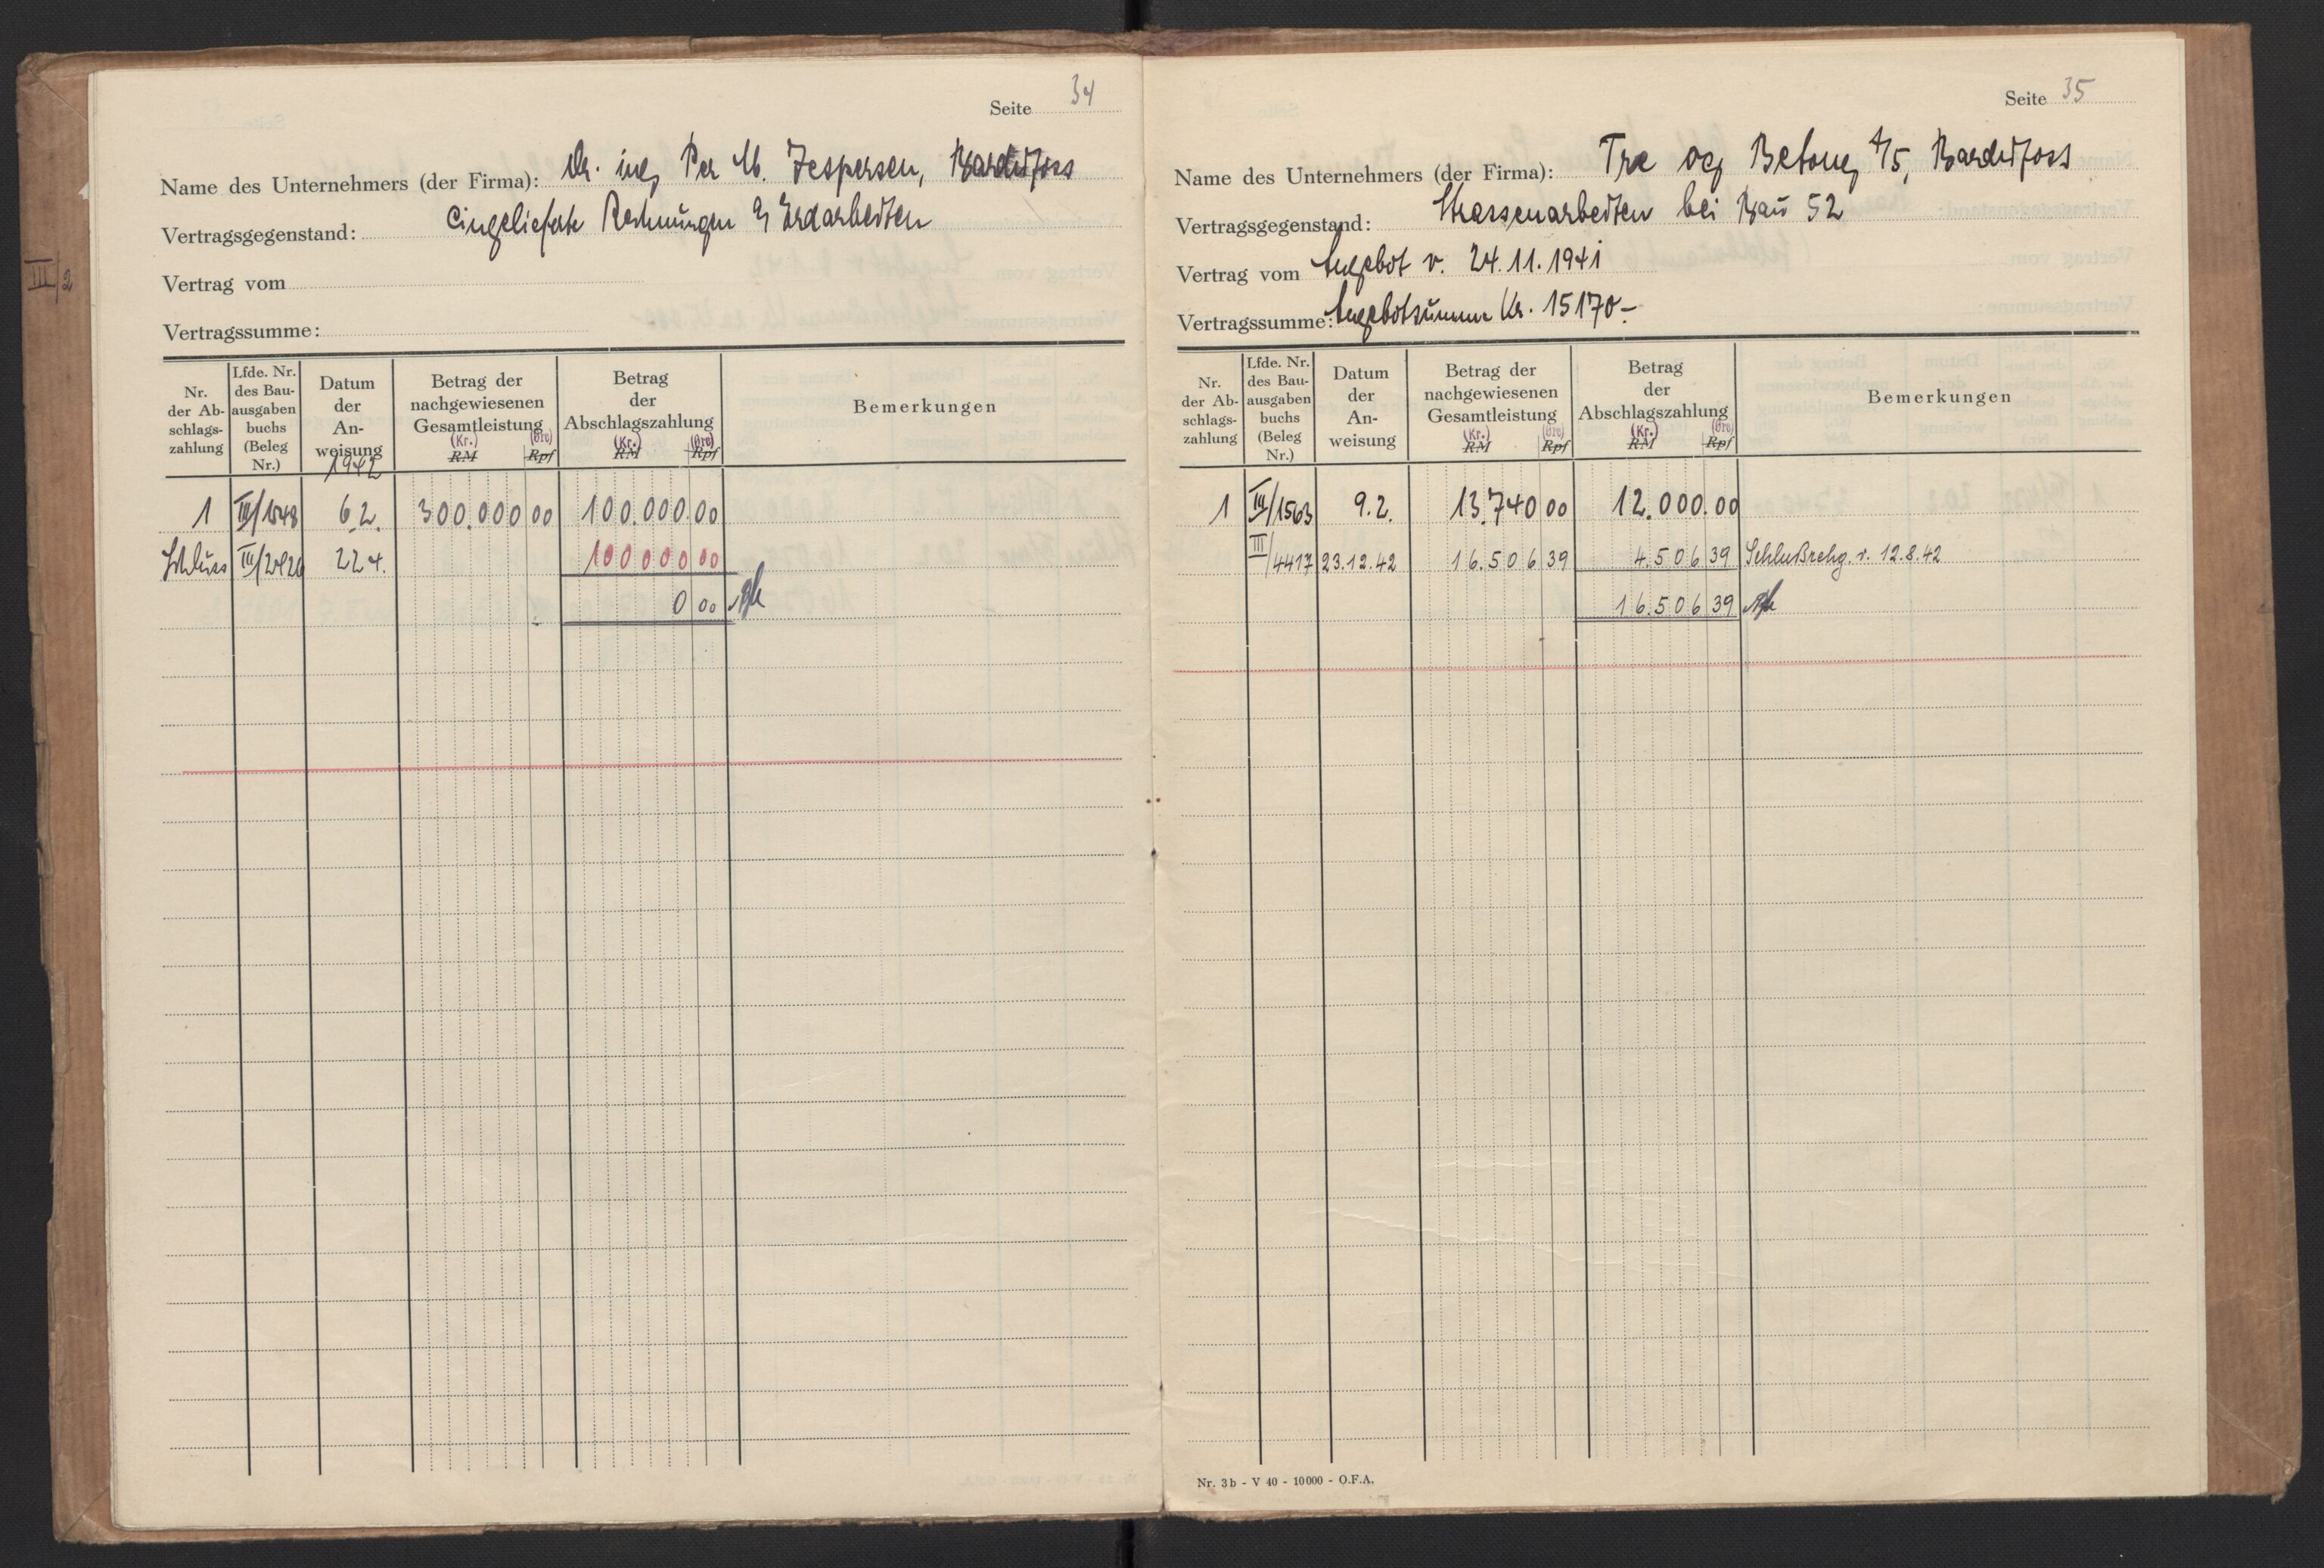 III/2
Seite 34
Name des Unternehmers (der Firma): Dr. ing. Per M. Jespersen, Bardufoss
Vertragsgegenstand: Eingelieferte Rechnungen Erdarbeiten
Vertrag vom
Vertragssumme:
Nr. der Abschlagszahlung | Lfde. Nr. des Bauausgabenbuchs (Beleg Nr.) | Datum der Anweisung | Betrag der nachgewiesenen Gesamtleistung | Betrag der Abschlagszahlung | Bemerkungen
(Kr.) (Öre) (Kr.) (Öre)
RM Rpf RM Rpf
1942
1 III/1548 6.2. 300.000 00 100.000.00
Schluss III/2420 22.4. 100000 00
0 00
Seite 35
Name des Unternehmers (der Firma): Tre og Betong A/S, Bardufoss
Vertragsgegenstand: Strassenarbeiten bei Bau 52
Vertrag vom Angebot v. 24.11.1941
Vertragssumme: Angebotsumme Kr. 15170.-
Nr. der Abschlagszahlung | Lfde. Nr. des Bauausgabenbuchs (Beleg Nr.) | Datum der Anweisung | Betrag der nachgewiesenen Gesamtleistung | Betrag der Abschlagszahlung | Bemerkungen
(Kr.) (Öre) (Kr.) (Öre)
RM Rpf RM Rpf
1 III/1563 9.2. 13.740 00 12.000.00
III/4417 23.12.42 16.506 39 4.506 39 Schlußrchg. v. 12.8.42
16.506 39
Nr. 3b - V 40 - 10000 - O.F.A.